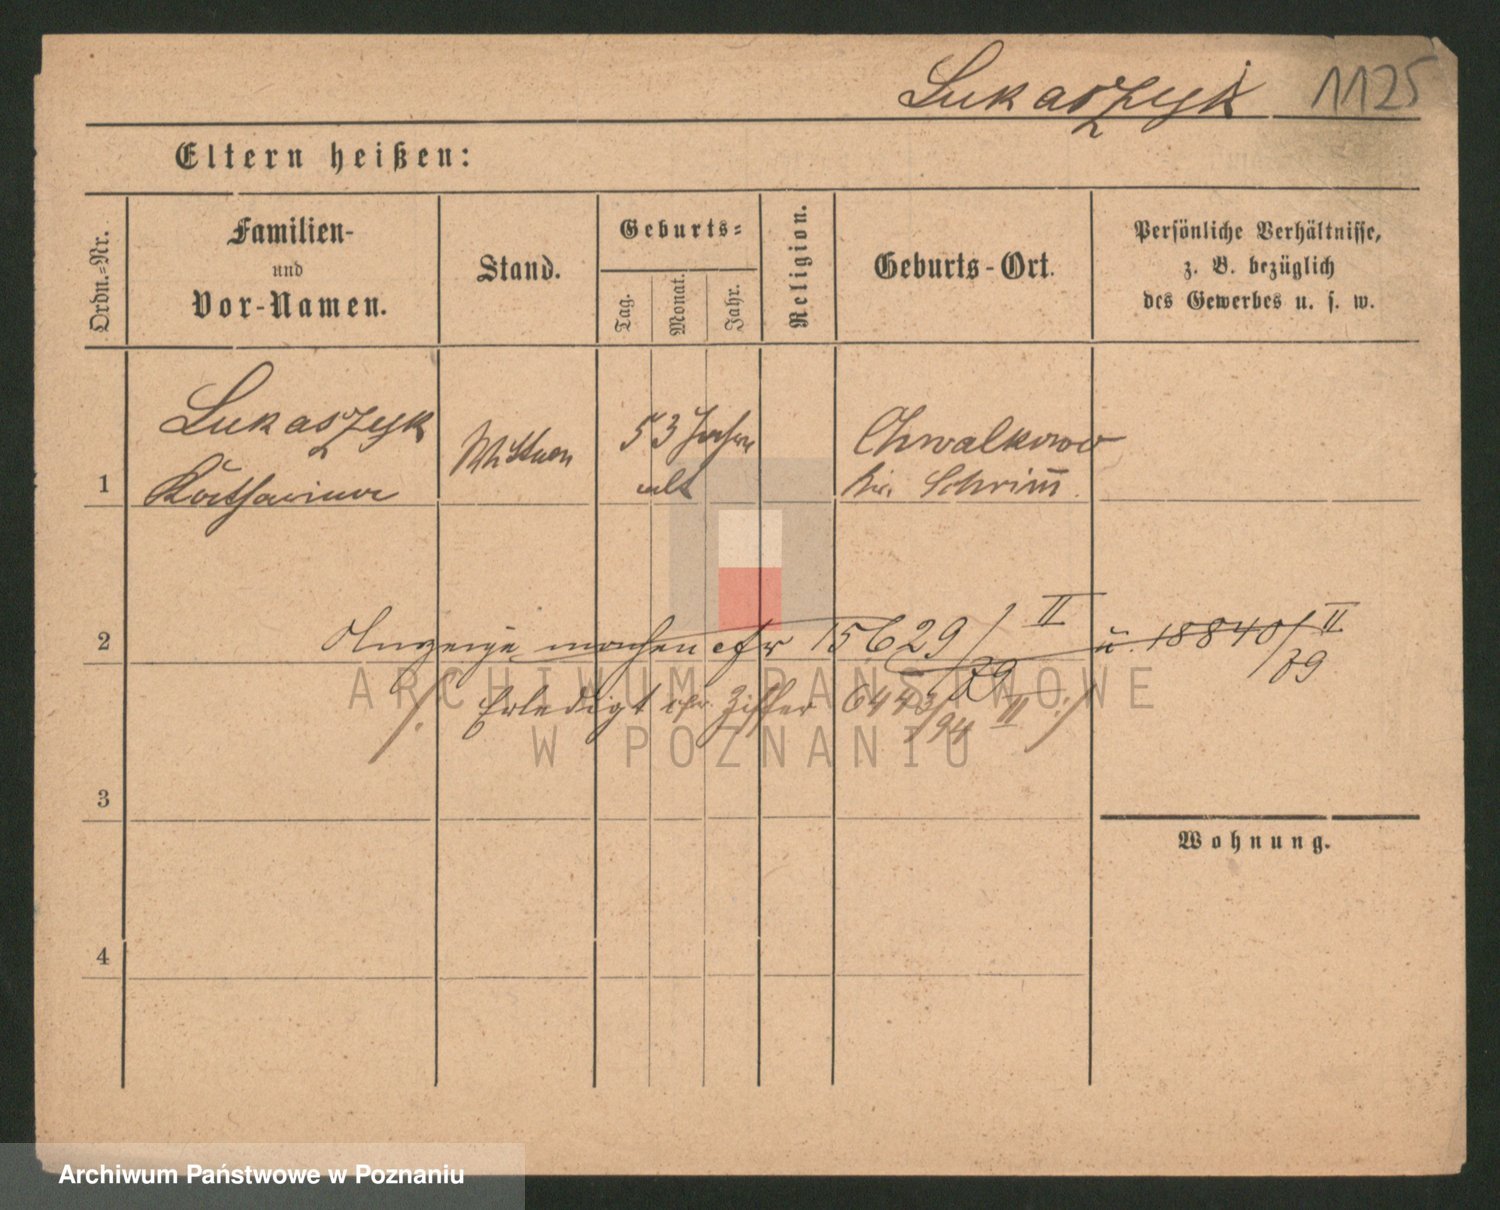 Lukaszyk 1125
Eltern heißen:
Ordn.-Nr.
Familien-
und
Vor-Namen.
Stand.
Geburts-
Tag.
Monat.
Jahr.
Religion.
Geburts-Ort.
Persönliche Verhältnisse,
z. B. bezüglich
des Gewerbes u. s. w.
1
Lukaszyk
Katharina
Wittwe
53 Jahre
alt
Chwalkowo
Kr. Schrimm
2
Anzeige machen cfr 15629/79 II u. 18840/79 II
/: Erledigt cfr. Ziffer 6443/94 II :/
3
4
Wohnung.
ARCHIWUM PAŃSTWOWE
W POZNANIU
Archiwum Państwowe w Poznaniu